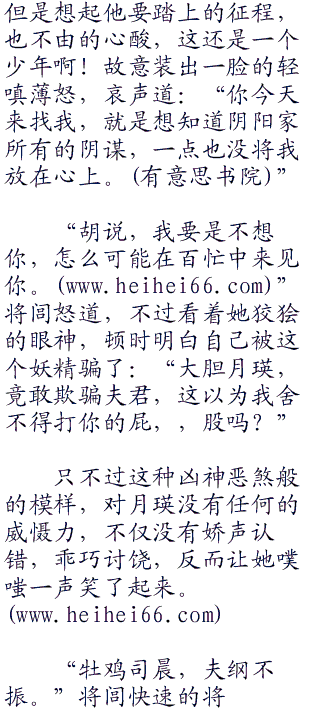 但是想起他要踏上的征程，
也不由的心酸，这还是一个
少年啊！故意装出一脸的轻
嗔薄怒，哀声道：“你今天
来找我，就是想知道阴阳家
所有的阴谋，一点也没将我
放在心上。(有意思书院)”
“胡说，我要是不想
你，怎么可能在百忙中来见
你。(www.heihei66.com)”
将闾怒道，不过看着她狡狯
的眼神，顿时明白自己被这
个妖精骗了：“大胆月瑛，
竟敢欺骗夫君，这以为我舍
不得打你的屁，，股吗？”
只不过这种凶神恶煞般
的模样，对月瑛没有任何的
威慑力，不仅没有娇声认
错，乖巧讨饶，反而让她噗
嗤一声笑了起来。
(www.heihei66.com)
“牡鸡司晨，夫纲不
振。”将闾快速的将